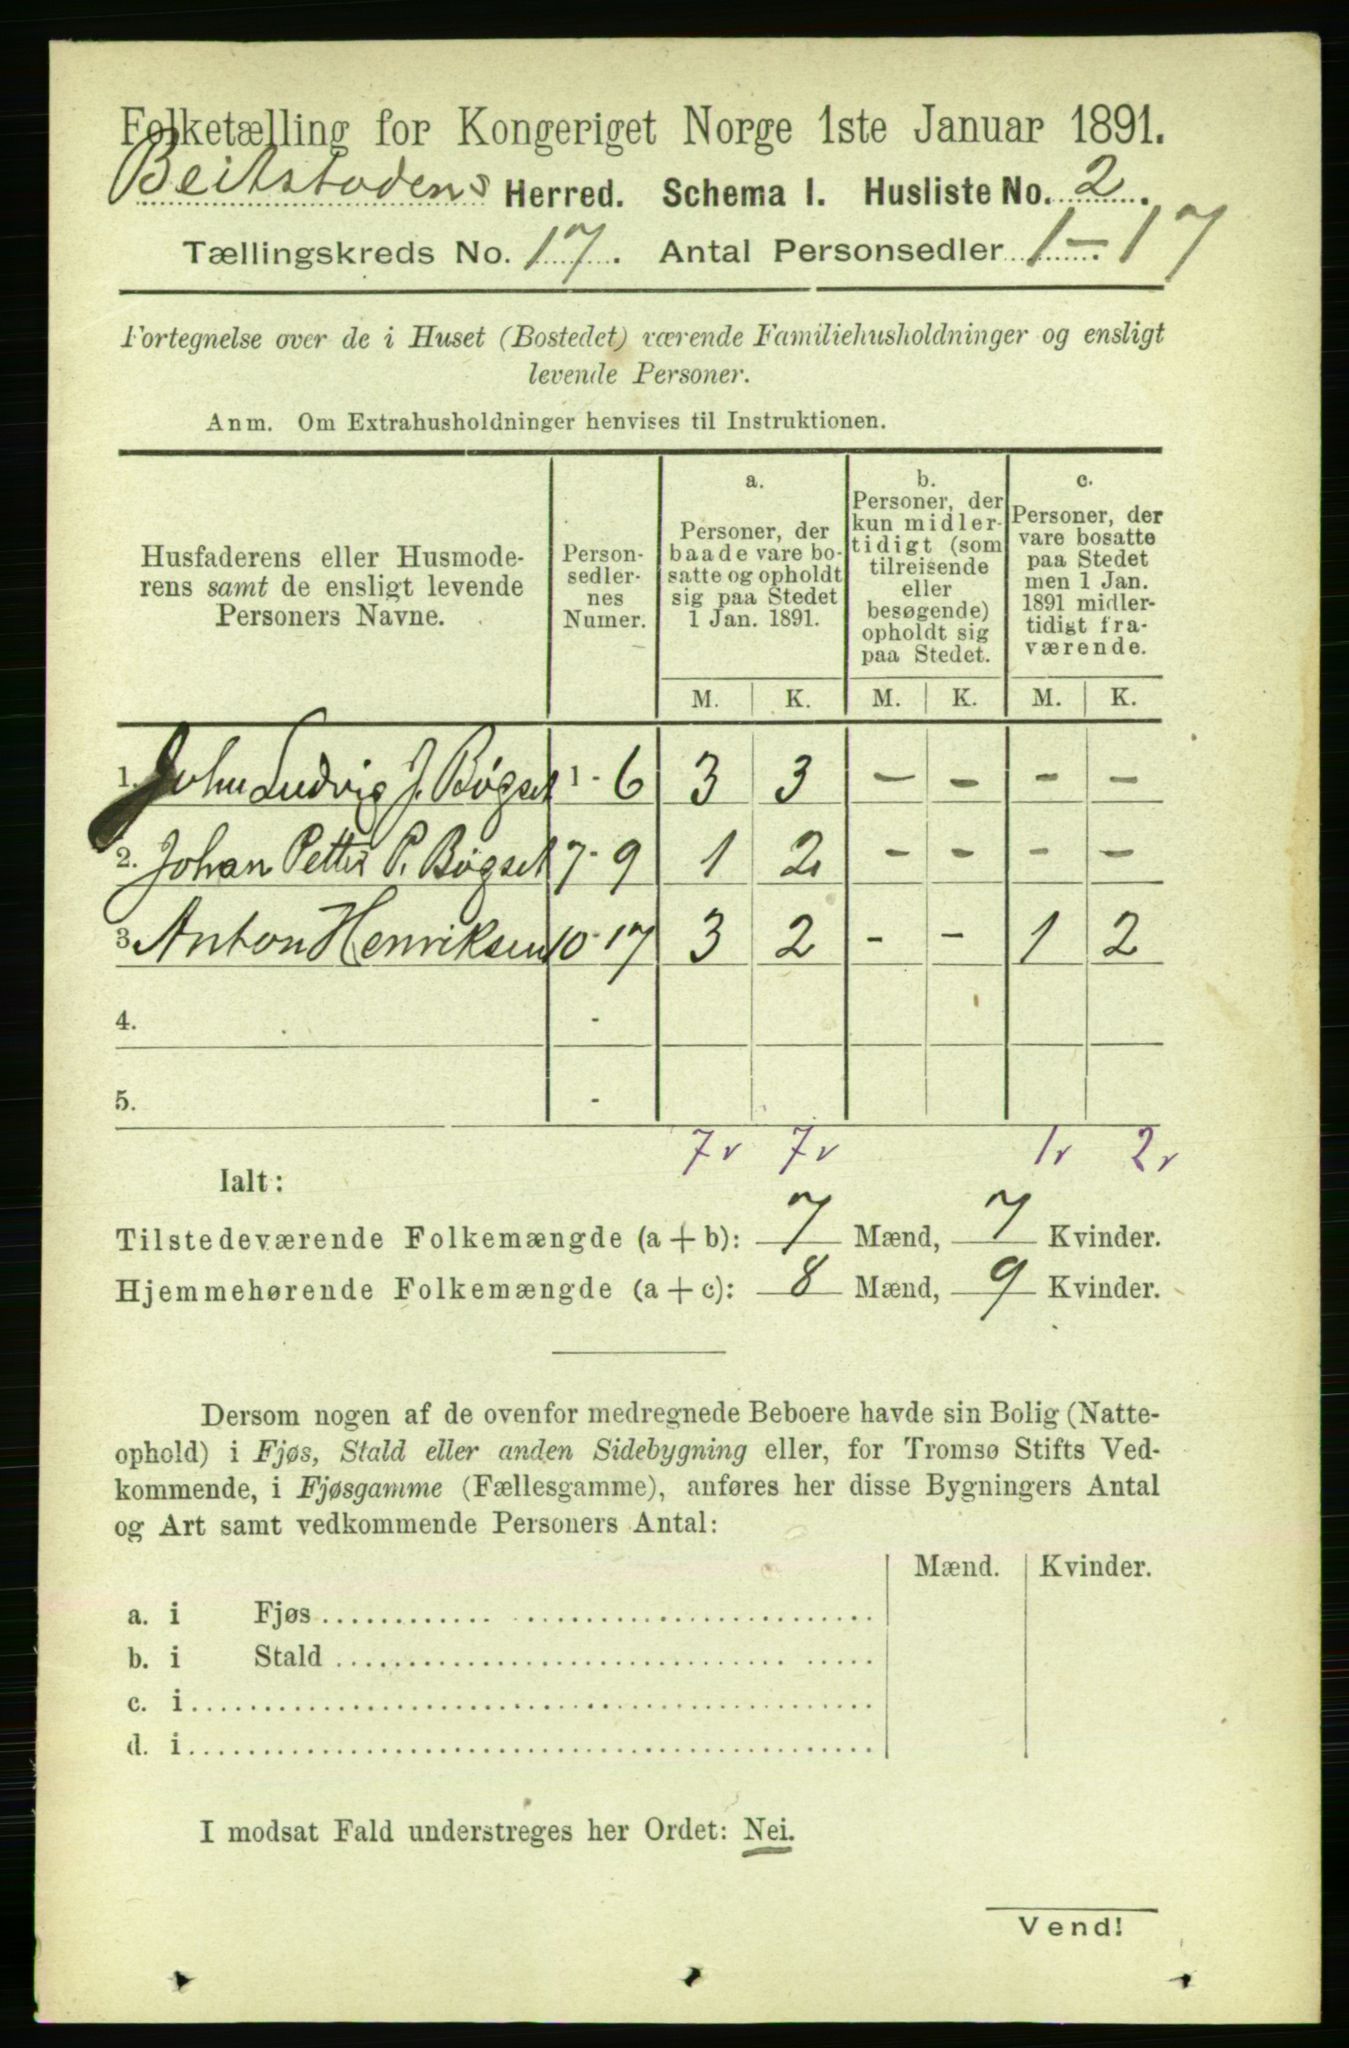 Folketælling for Kongeriget Norge 1ste Januar 1891.
Beitstadens Herred. Schema I. Husliste No. 2.
Tællingskreds No. 17. Antal Personsedler 1-17
Fortegnelse over de i Huset (Bostedet) værende Familiehusholdninger og ensligt
levende Personer.
Anm. Om Extrahusholdninger henvises til Instruktionen.
Husfaderens eller Husmode-
rens samt de ensligt levende
Personers Navne.
Person-
sedler-
nes
Numer.
a.
Personer, der
baade vare bo-
satte og opholdt
sig paa Stedet
1 Jan. 1891.
b.
Personer, der
kun midler-
tidigt (som
tilreisende
eller
besøgende)
opholdt sig
paa Stedet.
c.
Personer, der
vare bosatte
paa Stedet
men 1 Jan.
1891 midler-
tidigt fra-
værende.
M. K. M. K. M. K.
1. John Ludvig J. Bøgset 1 - 6 3 3 - - - -
2. Johan Petter P. Bøgset 7 - 9 1 2 - - - -
3. Anton Henriksen 10 - 17 3 2 - - 1 2
4. -
5. -
7v 7v 1v 2v
Ialt:
Tilstedeværende Folkemængde (a + b): 7 Mænd, 7 Kvinder.
Hjemmehørende Folkemængde (a + c): 8 Mænd, 9 Kvinder.
Dersom nogen af de ovenfor medregnede Beboere havde sin Bolig (Natte-
ophold) i Fjøs, Stald eller anden Sidebygning eller, for Tromsø Stifts Ved-
kommende, i Fjøsgamme (Fællesgamme), anføres her disse Bygningers Antal
og Art samt vedkommende Personers Antal:
Mænd. Kvinder.
a. i Fjøs
b. i Stald
c. i
d. i
I modsat Fald understreges her Ordet: Nei.
Vend!